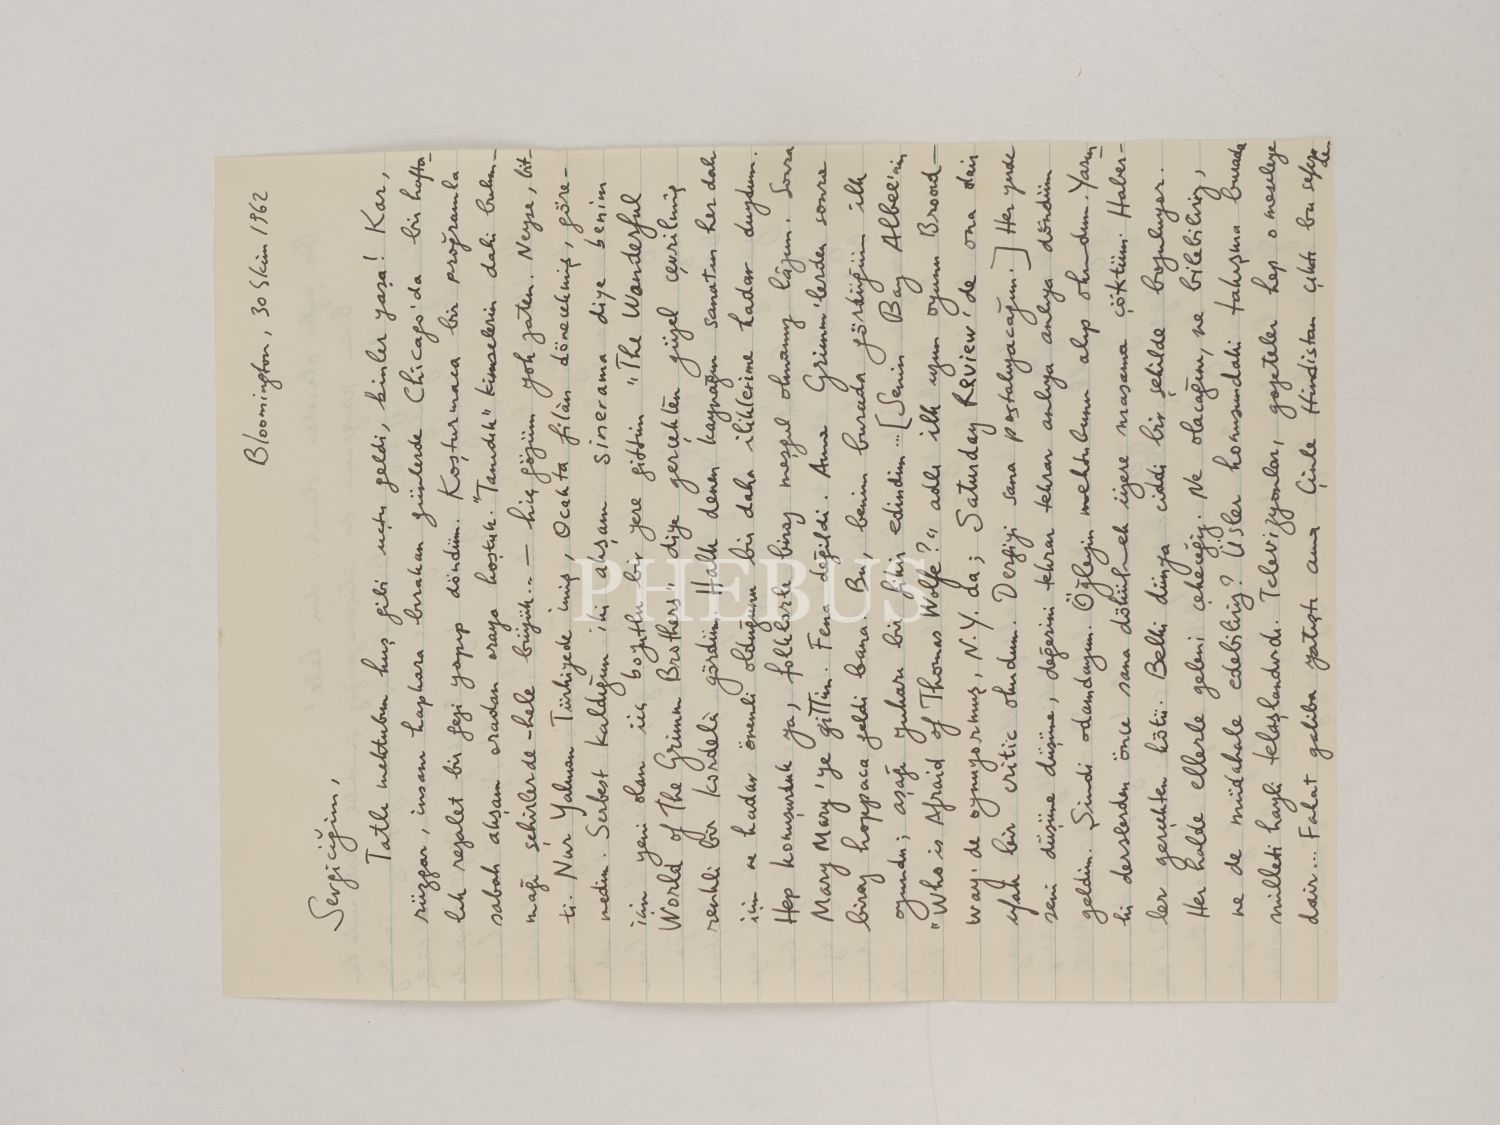 Bloomington, 30 Ekim 1962
Sevgiciğim,
Tatlı mektubun kuş gibi uçtu geldi, binler yaşa! Kar,
rüzgar, insanı kapkara bırakan günlerde Chicago'da bir hafta-
lık rezalet bir gezi yapıp döndüm. Koşturmaca bir programla
sabah akşam oradan oraya koştuk. "Tanıdık" kimselerin dahi bulun-
mağı şehirlerde -hele büyük... — hiç gözüm yok zaten. Neyse, bit-
ti. Nur Yalman Türkiyede imiş, Ocakta filân dönecekmiş, göre-
medim. Serbest kaldığım iki akşam sinerama diye benim
için yeni olan üç boyutlu bir yere gittim "The Wonderful
World of the Grimm Brothers" diye gerçekten güzel çevrilmiş
renkli bir kordelâ gördüm. Halk denen kaynağın sanatın her dalı
için ne kadar önemli olduğunu bir daha iliklerime kadar duydum.
Hep konuşurduk ya, folklorle biraz meşgul olmamız lâzım. Sonra
Mary Mary'ye gittim. Fena değildi. Ama Grimm'lerden sonra
biraz hoppaca geldi bana. Bu, benim burada gördüğüm ilk
oyundu; aşağı yukarı bir fikir edindim... [Senin Bay Albee'nin
"Who is Afraid of Thomas Wolfe?" adlı ilk uzun oyunu Broad-
way'de oynuyormuş, N.Y. da; Saturday Review'de ona dair
ufak bir critic okudum. Dergiyi sana postalıyacağım.] Her yerde
seni düşüne düşüne, değerini tekrar tekrar anlıya anlıya döndüm
geldim. Şimdi odamdayım. Öğleyin mektubunu alıp okudum. Yarın-
ki derslerden önce sana dökülmek üzere masama çöktüm. Haber-
ler gerçekten kötü. Belki dünya ciddi bir şekilde boyuluyor.
Her halde ellerle geleni çekeceğiz. Ne olacağını, ne bilebiliriz,
ne de müdahale edebiliriz? Üsler konusundaki takışma burada
milleti hayli telaşlandırdı. Televizyonlar, gazeteler hep o meseleye
dair... Fakat galiba yatıştı ama Çinle Hindistan çıktı bu sefer
de.
PHEBUS